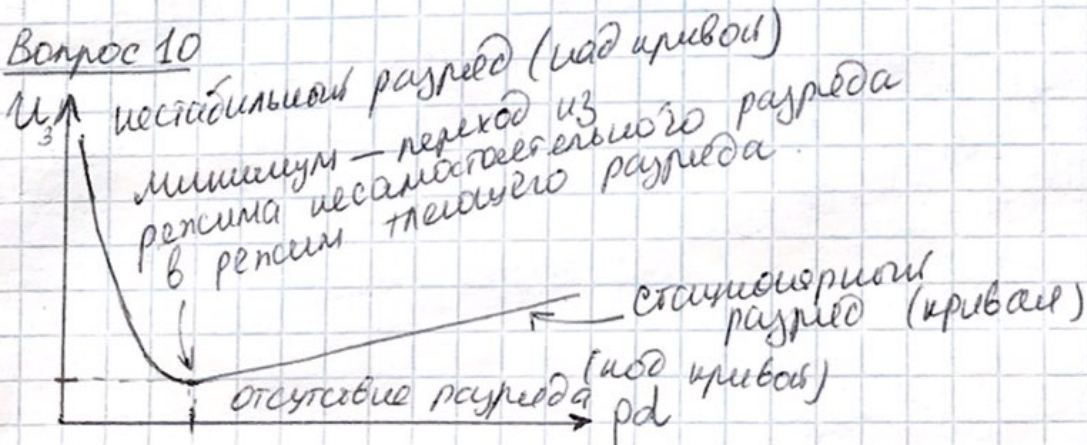 Вопрос 10
Uз
нестабильный разряд (над кривой)
минимум — переход из
режима несамостоятельного разряда
в режим тлеющего разряда.
стационарный
разряд (кривая)
отсутствие разряда (под кривой)
pd